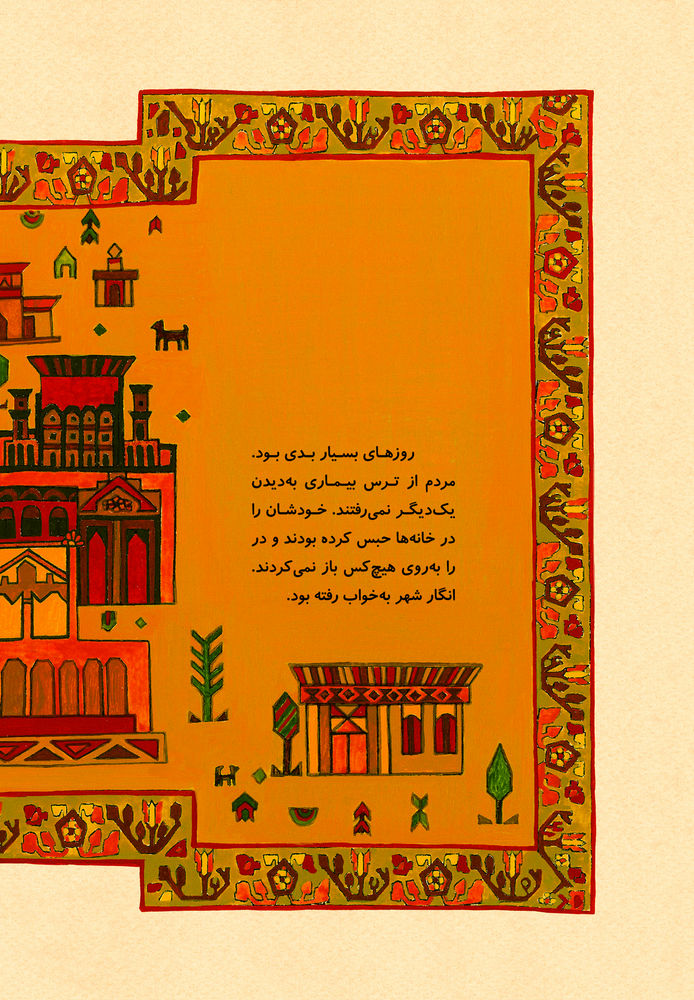 روزهای بسیار بدی بود.
مردم از ترس بیماری به‌دیدن
یک‌دیگر نمی‌رفتند. خودشان را
در خانه‌ها حبس کرده بودند و در
را به‌روی هیچ‌کس باز نمی‌کردند.
انگار شهر به‌خواب رفته بود.